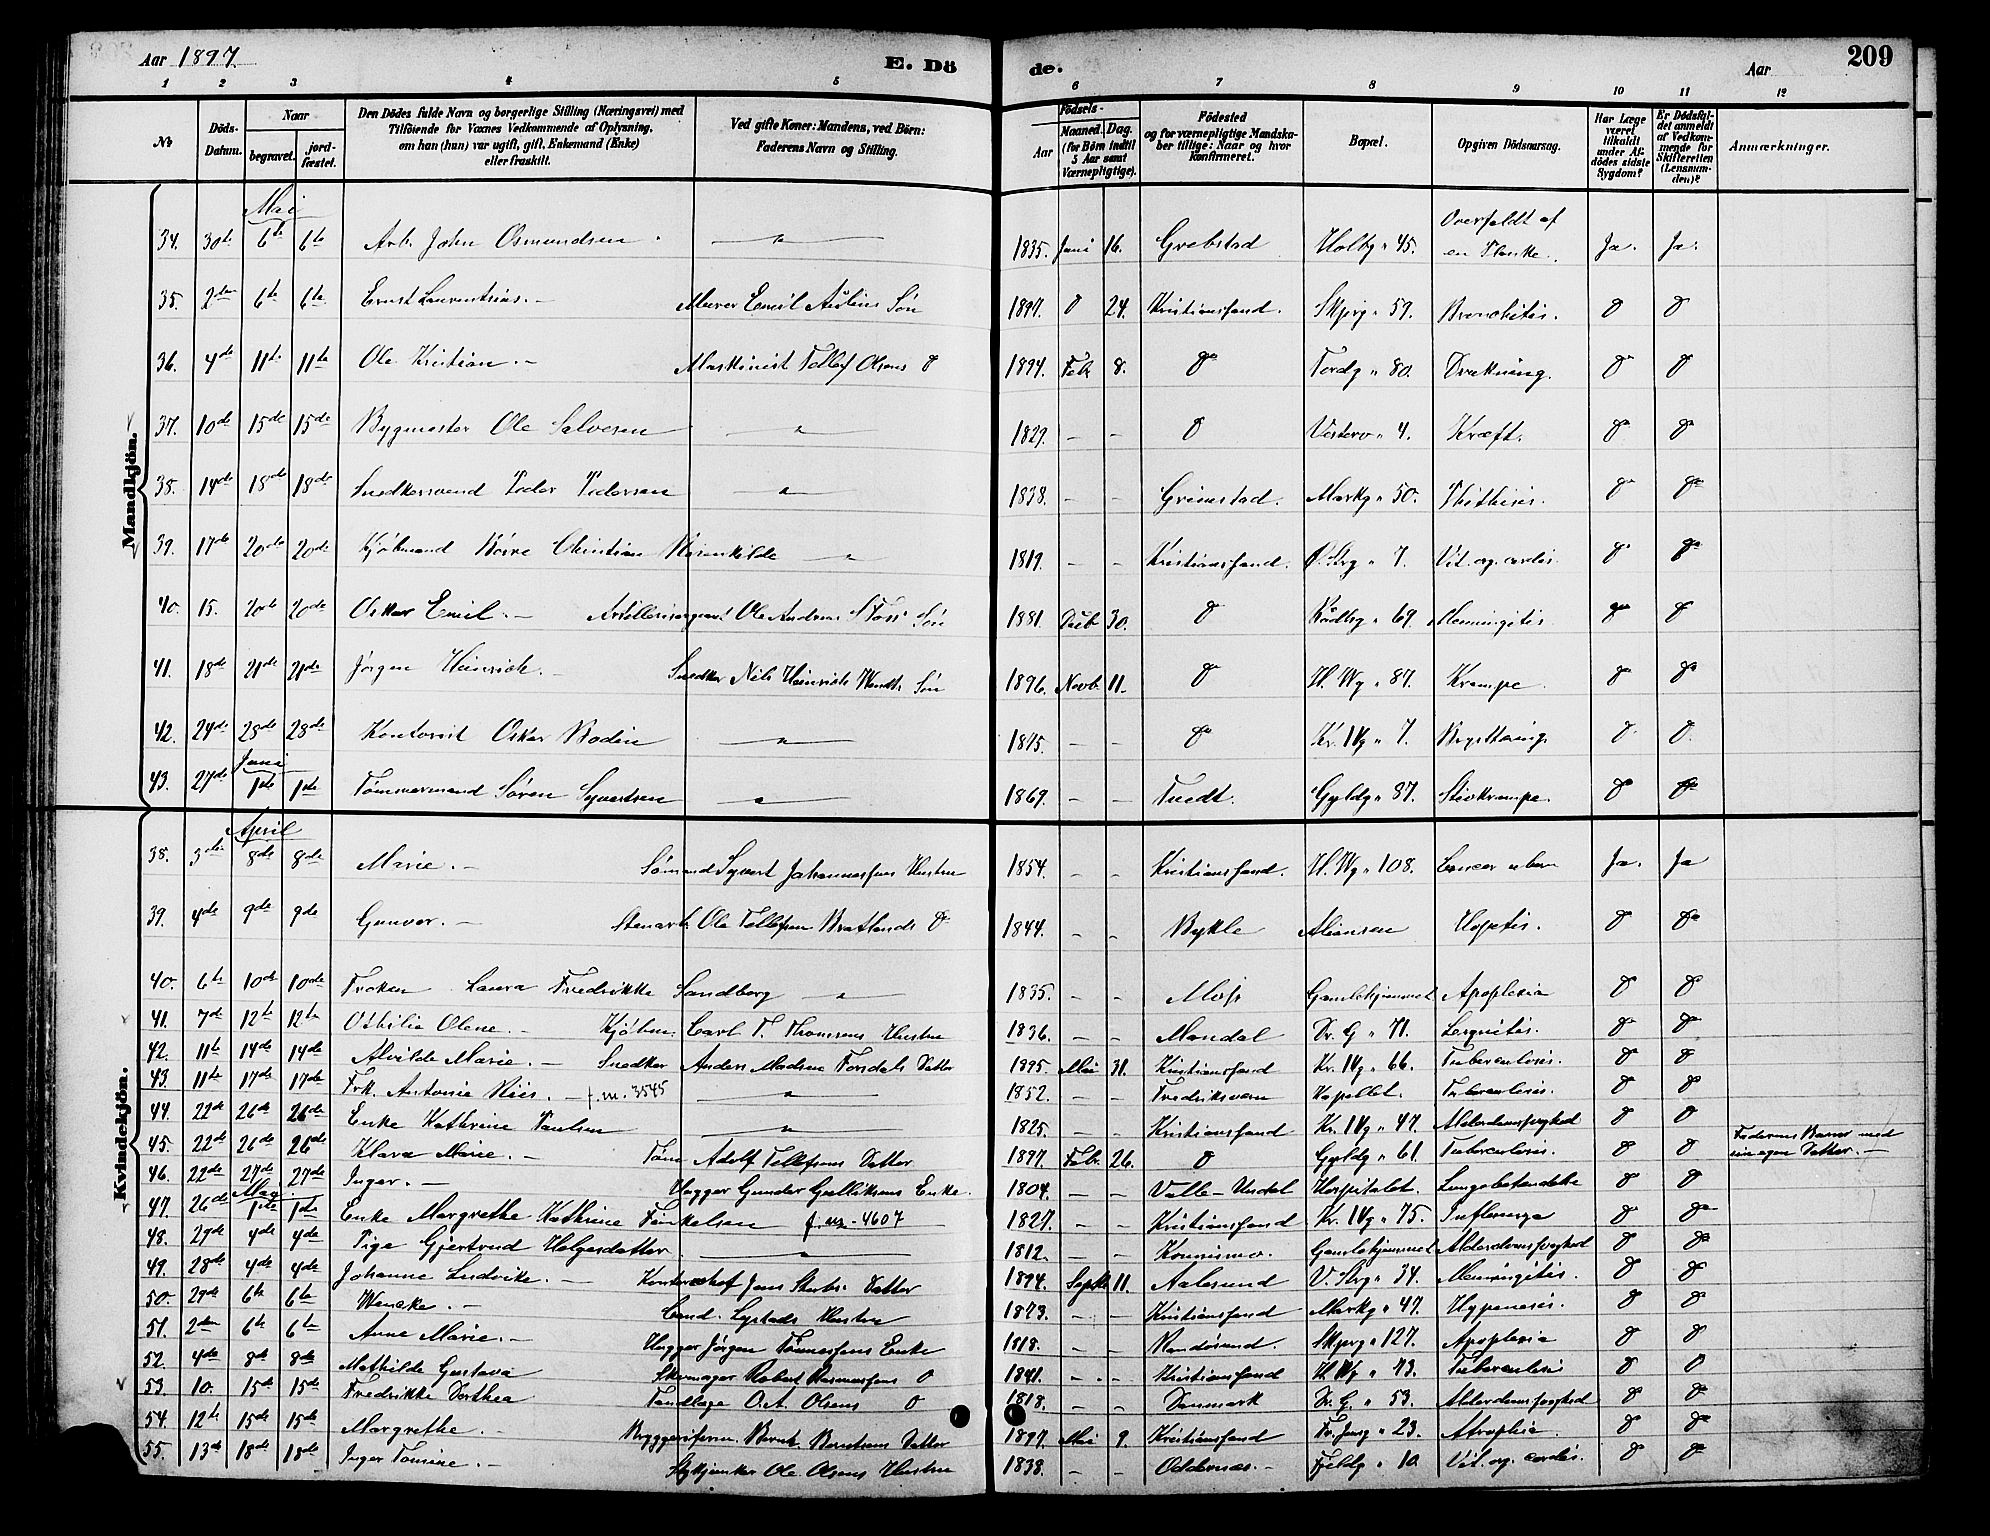 Aar 1897.
E. Dö
de.
Aar
209
1 2 3 4 5 6 7 8 9 10 11 12
No
Döds-Datum.
Naar
begravet.
jord-fæstet.
Den Dödes fulde Navn og borgerlige Stilling (Næringsvei) med
Tilföiende for Voxnes Vedkommende af Oplysning,
om han (hun) var ugift, gift, Enkemand (Enke)
eller fraskilt.
Ved gifte Koner: Mandens, ved Börn:
Faderens Navn og Stilling.
Födsels-
Aar
Maaned. Dag.
(for Börn indtil
5 Aar samt
Værnepligtige).
Födested
og for værnepligtige Mandska-
ber tillige: Naar og hvor
konfirmeret.
Bopæl.
Opgiven Dödsaarsag.
Har Læge
været
tilkaldt
under Af-
dödes sidste
Sygdom?
Er Dödsfal-
det anmeldt
af Vedkom-
mende for
Skifteretten
(Lensman-
den)?
Anmærkninger.
Mandkjön.
Mai
34. 30te 6te 6te Arb. John Osmundsen " 1835. Juni 16. Grebstad Holbg " 45. Overfaldt af en Planke. Ja. Ja.
35. 2den 6te 6te Ernst Laurentius. - Murer Emil Søn 1897. 24. Kristianssand. Skjerg " 59. Bronchitis.
36. 4de 11te 11te Ole Kristian. - Maskinist Tellef Olsens 1894. Feb 8. Tordg " 80. Drukning.
37. 10de 15de 15de Bygmester Ole Salvesen " 1829. - - Vesterv " 4. Kræft.
38. 14de 18de 18de Snedkersvend Peder Pedersen " 1838. - - Grimstad. Markg " 50. Phthisis.
39. 17de 20de 20de Kjøbmand Børre Christian Rosenkilde " 1819. - - Kristianssand. Ø. Strg " 7. Vit. og. cordis.
40. 15. 20de 20de Oskar Emil. - Ole Andreas Søn 1881. 30. 69. Meningitis.
41. 18de 21de 21de Jørgen Heinrich. - Snedker Nils Heinrich Wendts Søn 1896. Novb. 11. H. Wg " 87. Krampe.
42. 24de 28de 28de Kontorist Oskar Bodin " 1875. - - Kr. IVg " 7. Brysttæring.
Juni
43. 27de 1ste 1ste Tømmermand Søren Syvertsen " 1869. - - Tvedt. Gyldg " 87. Stivkrampe.
Kvindekjön.
April
38. 3die 8de 8de Marie. - Sømand Syvert Johannessens Hustru 1854. - - Kristianssand. H. Wg " 108. Cancer uteri Ja. Ja
39. 4de 9de 9de Gunvor. - Stenarb. Ole Tellefsen Bratlands 1844. - - Bykle Aliansen
40. 6te 10de 10de Frøken Laura Fredrikke Sandberg " 1835. - - Moss Gamlehjemmet Apoplexia
41. 7de 12te 12te Othilie Olene. - Kjøbm. Carl T. Thomsens Hustru 1836. - - Mandal Dr. G " 71.
42. 11te 14de 14de Alvilde Marie. - Snedker Anders Madsen Fordals Datter 1895. Mai 31. Kristianssand Kr. IVg " 66. Tuberculosis.
43. 11te 17de 17de Frk. Antonie Riis. - f.m. 3545 " 1852. - - Fredriksværn Kapellet. Tuberculosis.
44. 22de 26de 26de Enke Kathrine Paulsen " 1825. - - Kristianssand Kr. IVg " 47. Alderdomssvaghed
45. 22de 26de 26de Klara Marie. - Tøm. Adolf Tellefsens Datter 1897. Feb. 26. Gyldg " 61. Tuberculosis. Faderens Barn med sin egen Datter. -
46. 22de 27de 27de Inger. - Hugger Gunder Gulliksens Enke. 1804. - - Valle - Undal Hospitalet. Lungebetændelse
Mag.
47. 26de 1ste 1ste Enke Margrethe Kathrine Terkelsen f.m. 4607 1827. - - Kristianssand Kr. IVg " 75. Influenza
48. 29de 4de 4de Pige Gjertrud Helgesdatter " 1812. - - Konnismo. Gamlehjemmet Alderdomssvaghed
49. 28de 4de 4de Johanne Ludvike. - Jens Datter 1894. Septb. 11. Aalesund V. Strg " 34. Meningitis.
50. 29de 6te 6te Wencke. - Cand. Lystads Hustru 1873. - - Kristianssand Markg " 47.
51. 2den 6te 6te Anne Marie. - Hugger Jørgen Tønnessens Enke 1818. - - Randøsund. Skjerg " 127. Apoplexia
52. 4de 8de 8de Mathilde Gustava Skomager Robert Rasmussens 1841. - - Kristianssand H. Wg " 43. Tuberculosis
53. 10. 15de 15de Fredrikke Dorthea Tandlæge O.A. Olsens 1818. - - Danmark Dr. G. " 53. Alderdomssvaghed
54. 12te 15de 15de Margrethe. - Berntsens Datter 1897. Mai 9. Kristianssand Fr. Jensg " 23. Atrophia.
55. 13de 18de 18de Inger Tomine. - Ole Olsens Hustru 1838. - - Oddernæs. Feldg " 10. Vit. og. cordis.